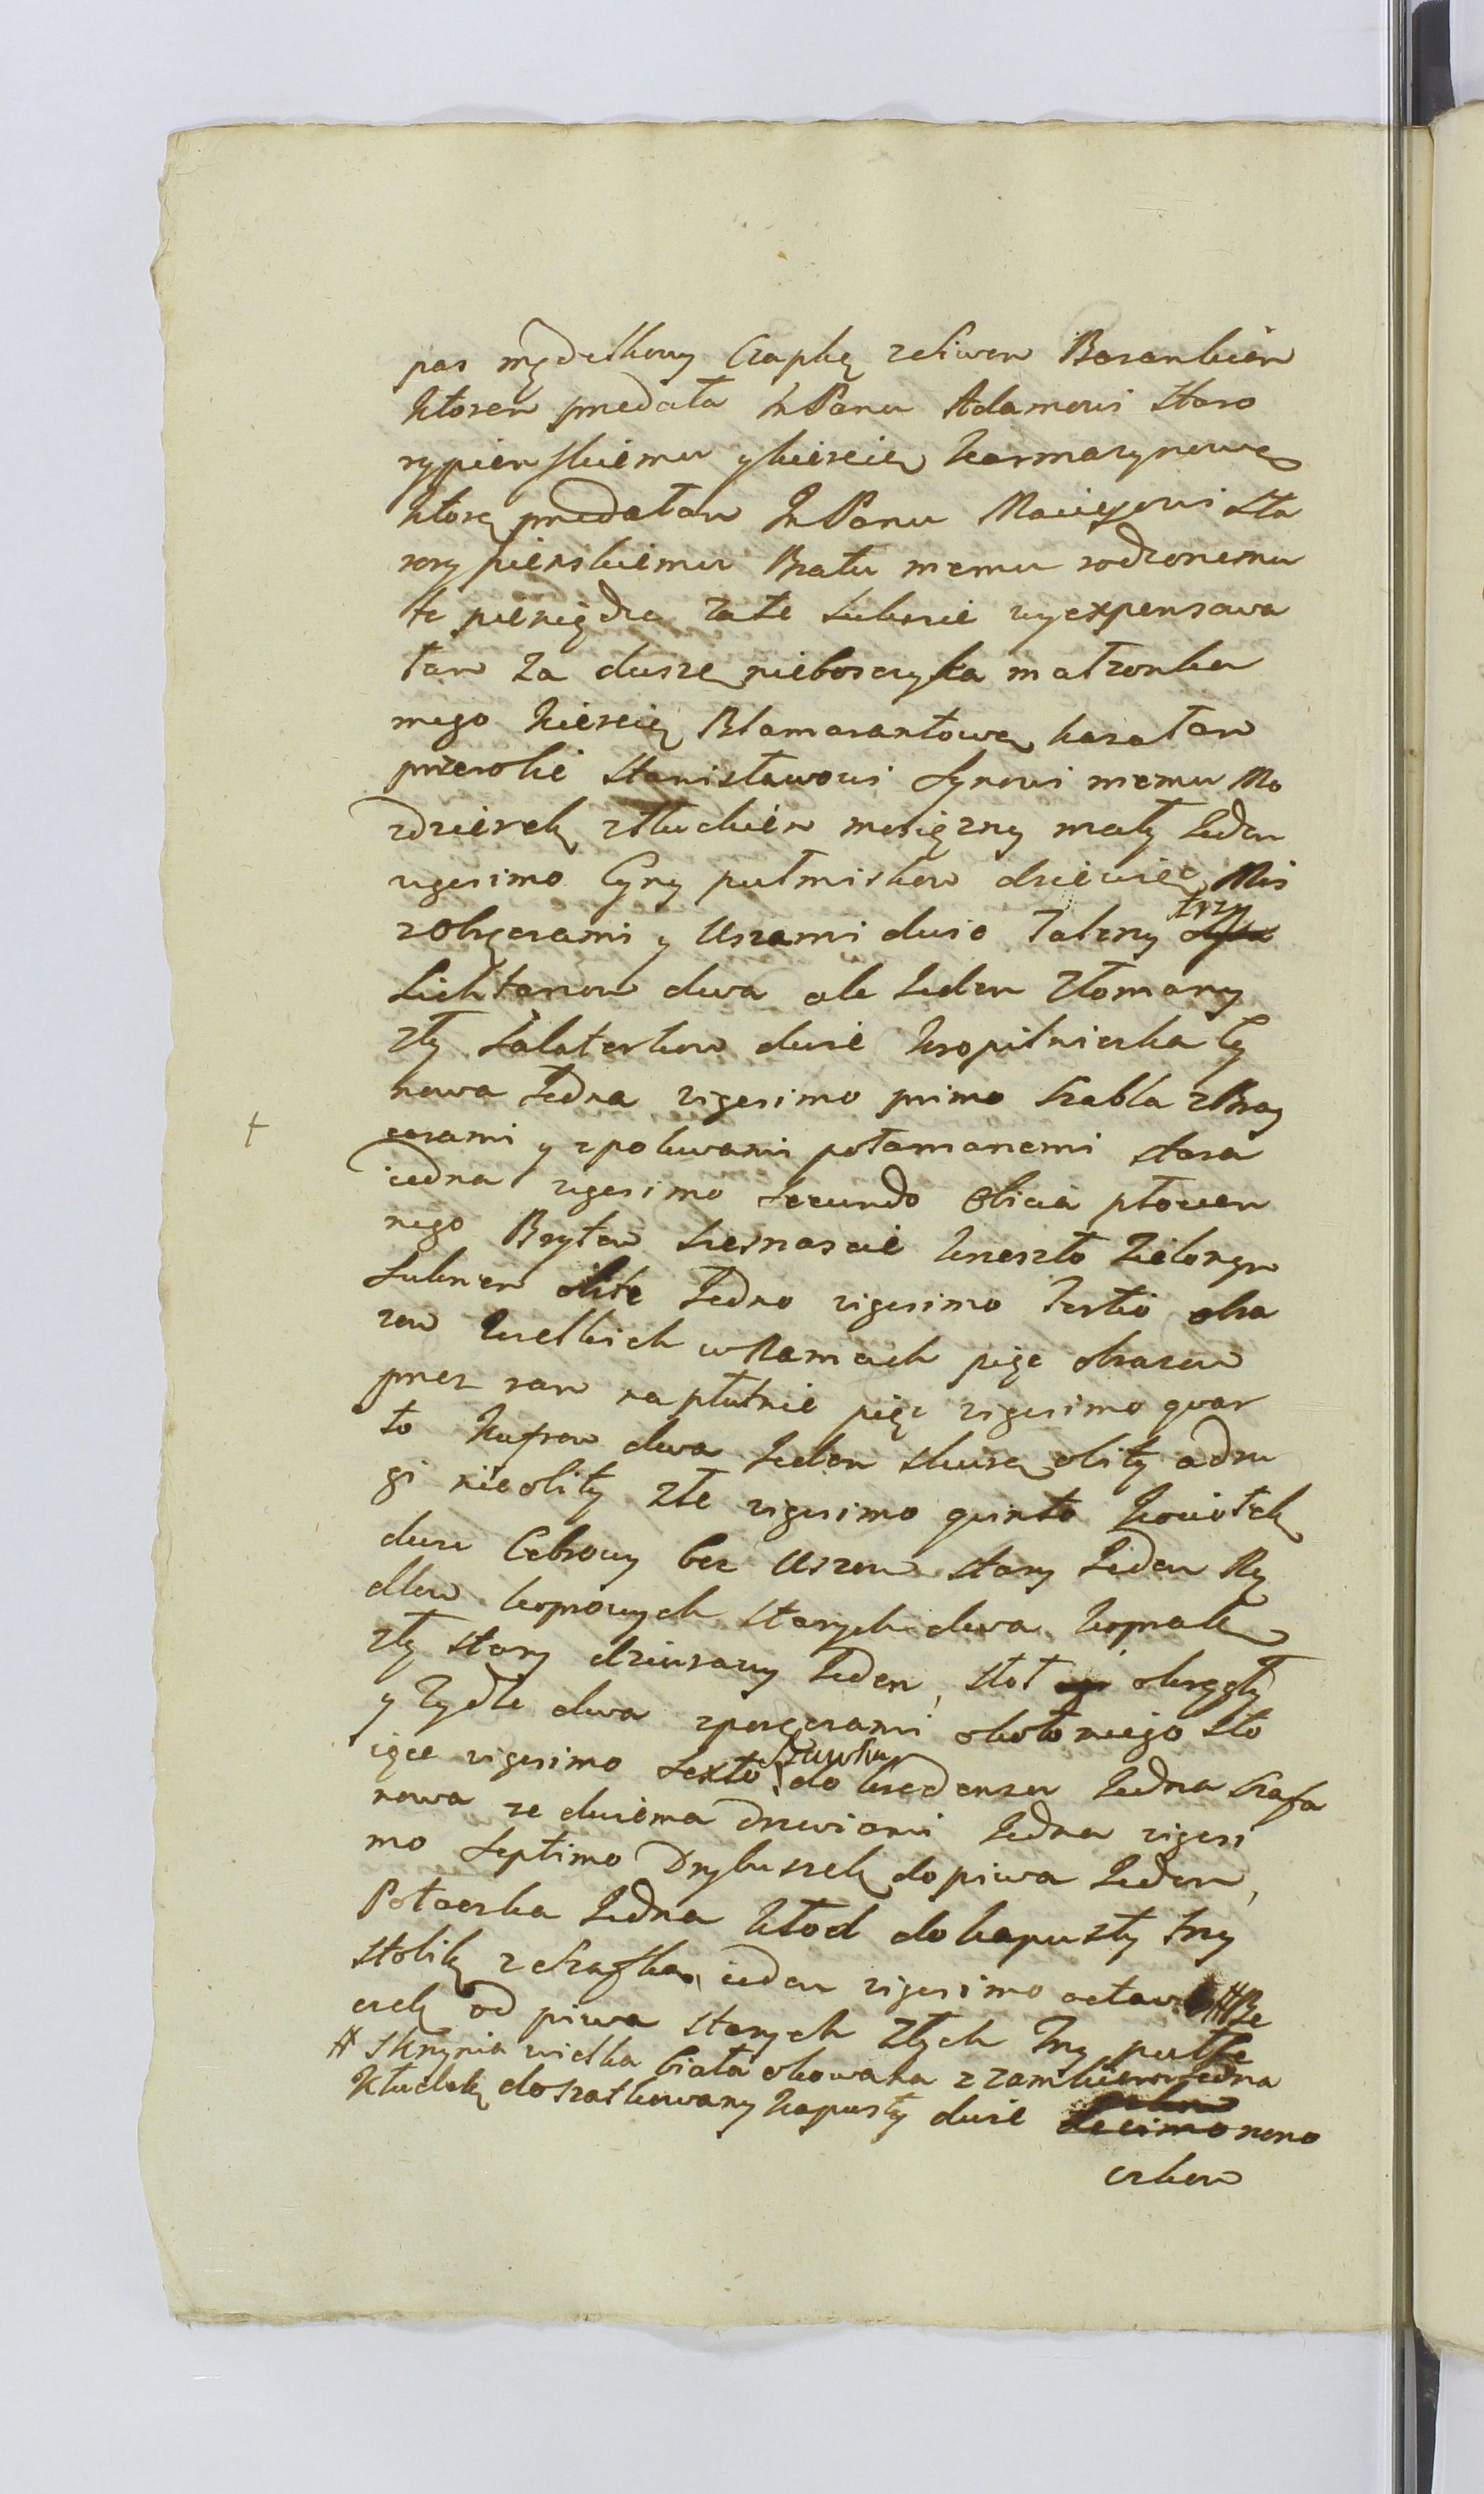 pas mędelkowy Czapkę zsiwem Barankiem
ktorem predała JmPanu Adamowi Staro
rypienskiemu ykiereie karmazynowę
ktorę predałam JmPanu Macieyowi Sta
rorypienskiemu Bratu memu rodzonemu
te pieniędze zate suknie wyexpensowa
łam za duszę nieboszczyka małzonka
mego kiereię Blamarantowę kazałam
przerobic Stanisławowi Synowi memu Mo
zdzierek ztłuckiem mosięzny mały Jeden
vigesimo Cyny pułmiskow dziewięc Mis
zobręcami y Uszami dwie Talerzy trzy
Lichtarzow dwa ale Jeden złomany
zły Salaterkow dwie kropilniczka Cy
nowa Jedna vigesimo primo Szabla zBray
carami y zpoluwami połamanemi stara
iedna vigesimo secundo Obicia płocien
nego Brytow szesnascie krzesło zielonym
Suknem obite Jedno vigesimo Tertio obra
zow wielkich wRamach pięc obrazow
przez ram na płutnie pięc vigesimo quar
to kufrow dwa Jeden skurę obity adru
gi nieobity złe vigesimo quinto kociołek
duzy Cebrowy bez Uszow stary Jeden Ry
dlow kopowych starych dwa, kopak
zły stary dziurawy Jeden, stoł okrągły
y Zydle dwa zporęcami około niego sto
iące vigesimo sexto szawka do kredensu Jedna Szafa
nowa ze dwiema drzwiami Jedna vigesi
mo septimo Drybuszek do piwa Jeden,
Połbeczka Jedna kłod do kapusty trzy
stolik zszafką ieden vigesimo octavo # Be
czek od piwa starych złych trzy pułbe
# Skrzynia wielka biała okowana z zamkiem Jedna
kłudek do szatkowany kapusty dwie nono
czkow